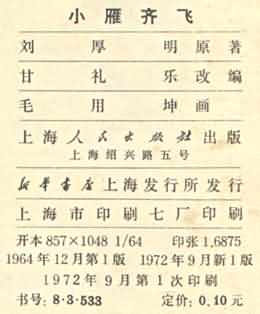 小雁齐飞
刘厚明原著
甘礼乐改编
毛用坤画
上海人民出版社出版
上海绍兴路五号
新华书店上海发行所发行
上海市印刷七厂印刷
开本857×1048 1/64 印张1.6875
1964年12月第1版 1972年9月新1版
1972年9月第1次印刷
书号:8·3·533 定价:0.10元